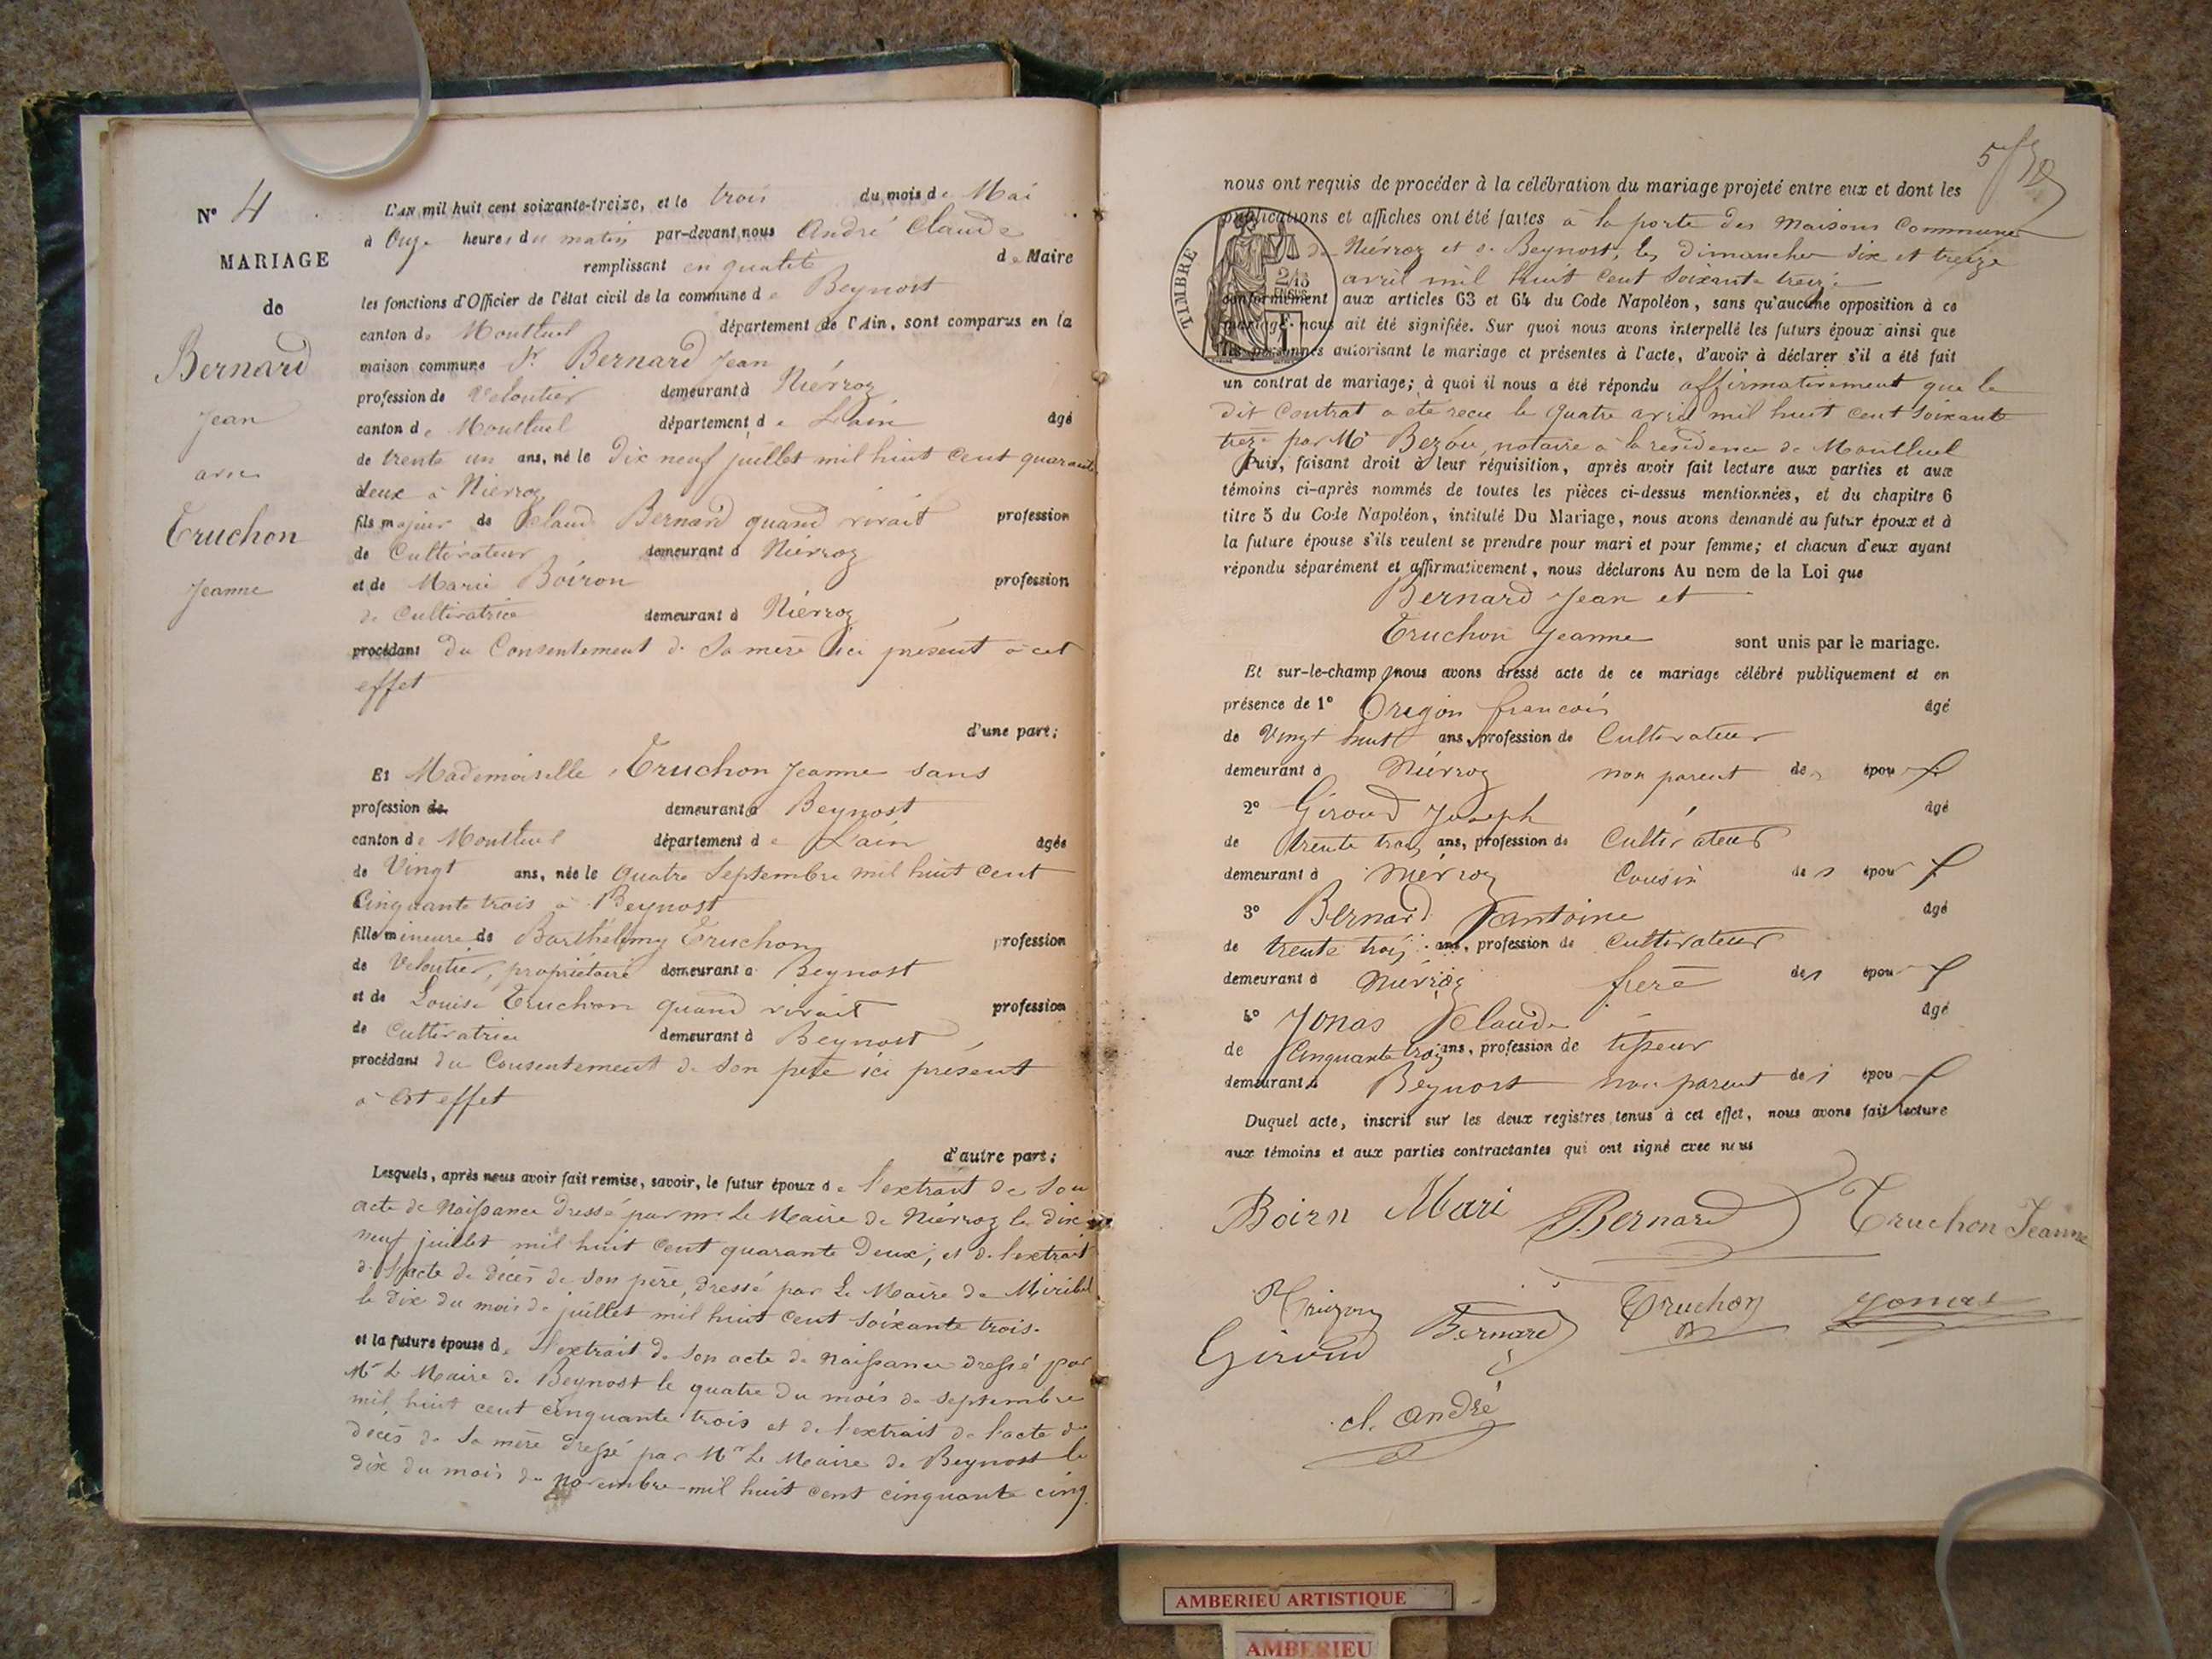 N° 4
MARIAGE
de
Bernard
Jean
avec
Truchon
Jeanne
L'AN mil huit cent soixante-treize, et le trois du mois de Mai
à Onze heures du matin par-devant nous André Claude
remplissant en qualité de Maire
les fonctions d'Officier de l'état civil de la commune de Beynost
canton de Montluel département de l'Ain, sont comparus en la
maison commune Sr. Bernard Jean
profession de Veloutier demeurant à Niévroz
canton de Montluel département de L'ain âgé
de trente un ans, né le Dix neuf juillet mil huit cent quarante
deux à Nievroz
fils majeur de Claude Bernard quand vivait profession
de Cultivateur demeurant à Niévroz
et de Marie Boiron profession
de Cultivatrice demeurant à Niévroz
procédant du Consentement de Sa mère ici présent à cet
effet
d'une part;
Et Mademoiselle Truchon Jeanne sans
profession de demeurant à Beynost
canton de Montluel département de L'ain âgée
de Vingt ans, née le quatre Septembre mil huit cent
Cinquante trois à Beynost
fille mineure de Barthélemy Truchon profession
de Veloutier, propriétaire demeurant à Beynost
et de Louise Truchon quand vivait profession
de Cultivatrice demeurant à Beynost
procédant du Consentement de Son père ici présent
à cet effet
d'autre part;
Lesquels, après nous avoir fait remise, savoir, le futur époux de l'extrait de Son
acte de Naissance dressé par mr Le Maire de Niévroz le dix
neuf juillet mil huit cent quarante deux, et de l'extrait
de l'acte de décès de son père, dressé par Le Maire de Miribel
le dix du mois de juillet mil huit cent soixante trois.
et la future épouse de l'extrait de son acte de naissance dressé par
Mr Le Maire de Beynost le quatre du mois de septembre
mil huit cent cinquante trois et de l'extrait de l'acte de
décès de Sa mère dressé par Mr Le Maire de Beynost le
dix du mois de novembre mil huit cent cinquante cinq
nous ont requis de procéder à la célébration du mariage projeté entre eux et dont les
publications et affiches ont été faites à la porte des Maisons Communes
de Niévroz et de Beynost, les dimanches Six et treize
avril mil huit cent soixante treize
TIMBRE
conformément aux articles 63 et 64 du Code Napoléon, sans qu'aucune opposition à ce
mariage nous ait été signifiée. Sur quoi nous avons interpellé les futurs époux ainsi que
les personnes autorisant le mariage et présentes à l'acte, d'avoir à déclarer s'il a été fait
un contrat de mariage; à quoi il nous a été répondu affirmativement que le
dit Contrat a été recu le quatre avril mil huit cent soixante
treize par Me Bezou, notaire à la résidence de Montluel
Puis, faisant droit à leur réquisition, après avoir fait lecture aux parties et aux
témoins ci-après nommés de toutes les pièces ci-dessus mentionnées, et du chapitre 6
titre 5 du Code Napoléon, intitulé Du Mariage, nous avons demandé au futur époux et à
la future épouse s'ils veulent se prendre pour mari et pour femme; et chacun d'eux ayant
répondu séparément et affirmativement, nous déclarons Au nom de la Loi que
Bernard Jean et
Truchon Jeanne sont unis par le mariage.
Et sur-le-champ nous avons dressé acte de ce mariage célébré publiquement et en
présence de 1° Origon francois âgé
de Vingt huit ans, profession de Cultivateur
demeurant à Niévroz non parent des épou
2° Giroud Joseph âgé
de trente trois ans, profession de Cultivateur
demeurant à Niévroz Cousin des épou
3° Bernard antoine âgé
de trente trois ans, profession de Cultivateur
demeurant à Niévroz frère des épou
4° Jonas Claude âgé
de Cinquante trois ans, profession de tisseur
demeurant à Beynost non parent des épou
Duquel acte, inscrit sur les deux registres tenus à cet effet, nous avons fait lecture
aux témoins et aux parties contractantes qui ont signé avec nous
Boirn Mari Bernard Truchon Jeanne
Truchon Jonas
Giroud Bernard
cl. André
AMBERIEU ARTISTIQUE
AMBERIEU